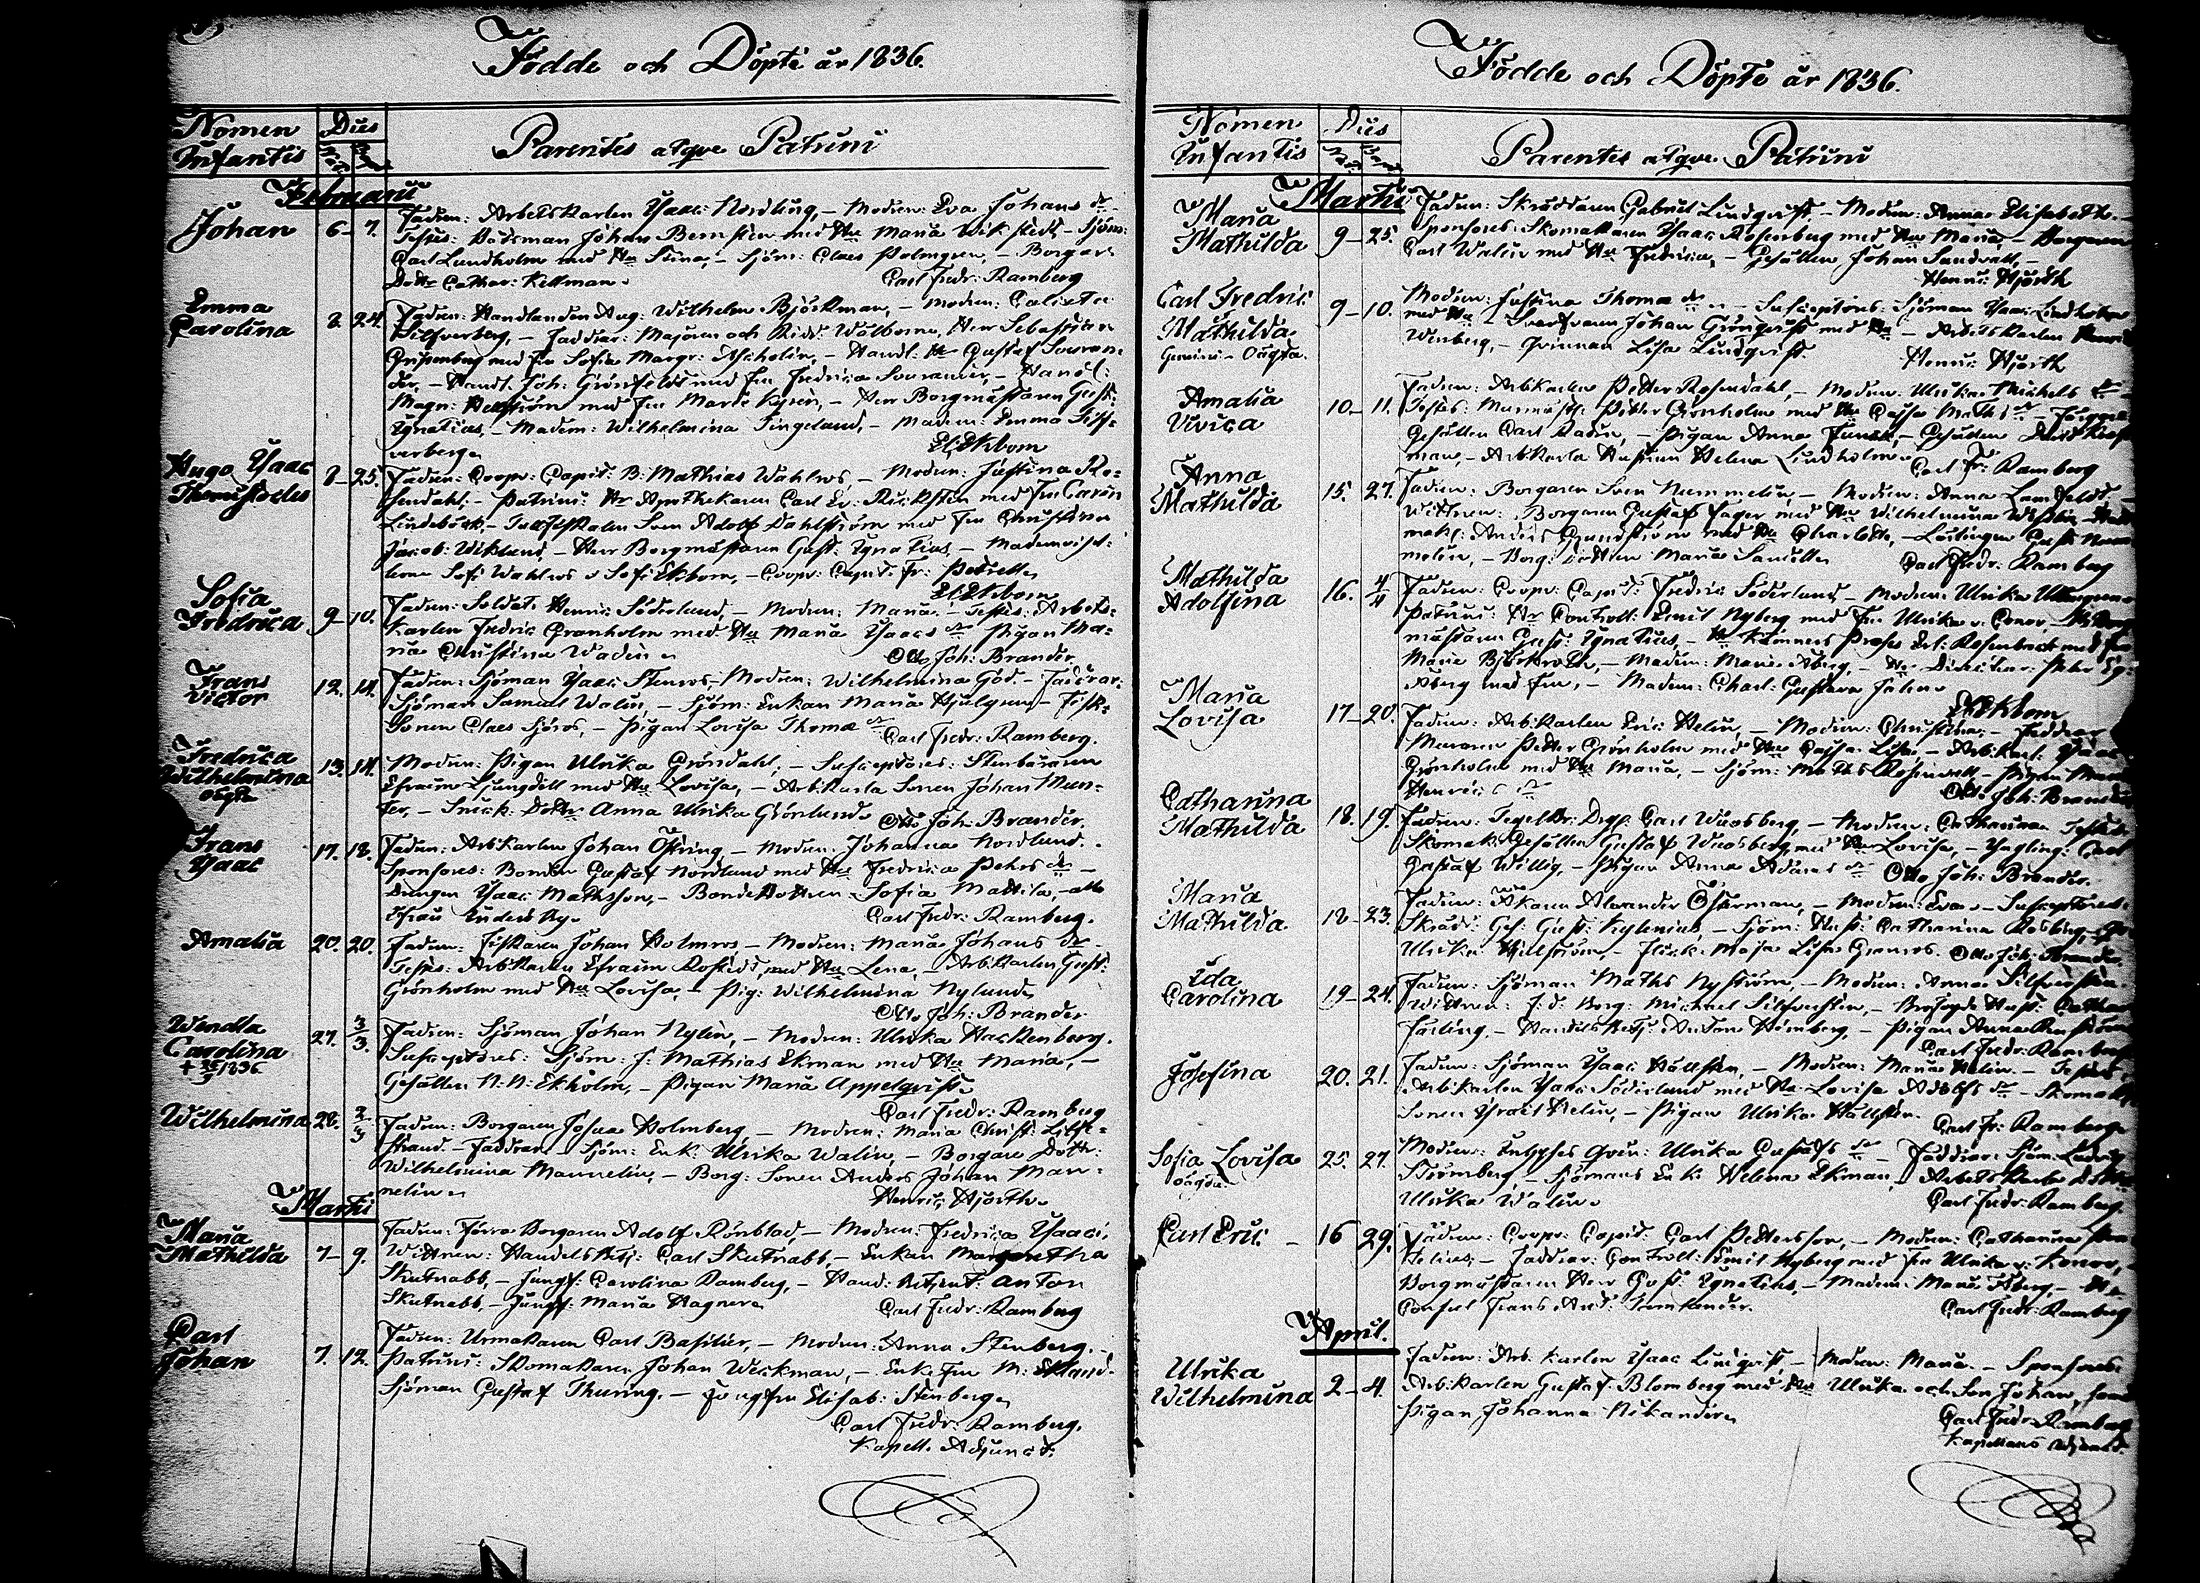 Födde och Döpte år 1836.
Nomen Infantis
Dies
Parentes atque Patrini
Februarii
Johan 6 - 7. Fadren: Arbetskarlen Isaac Nordling, - Modren: Eva Johans dr
Testes: Båtsman Johan Bernsten med Hu Maria Wikstedt - Sjöm:
Carl Lundholm med Hu Stina, - Sjöm: Claes Palmgren, - Borgar
Dottr Cathar: Kellman.
Carl Fredr: Ramberg
Emma Carolina 8. 24. Fadren: Handlanden Aug. Wilhelm Björkman, - Modren: Calixta
Silfverberg, - Faddrar: Majoren och Ridd: Herr Sebastian
Gripenberg med Fru Sofia Margr:
- Handl. Joh: Grönfeldt med Fru Fredrica - Handl:
Magn: Hellström med Fru Marie - Herr Borgmästaren Gust:
Ignatius, - Madem: Wilhelmina Tingelund, - Madem: Emma Silf-
verberg.
El: Ekbom
Hugo Isaac Themistocles 8 - 25. Fadren: Coopv: Capit: B: Mathias Wahlros, - Modren: Justina Ro-
sendahl, - Patrini: Hr Apothekaren Carl Ed: med Fru Carin
Lindebäck, - Tullfiskalen Sven Adolf Dahlström med Fru Christina
Jacob: Wiklund, - Herr Borgmästaren Gust: Ignatius, - Mademoisel-
lerne Sofi Wahlros o Sofi Ekbom, - Coopv: Capit: Fr: Petrell.
El: Ekbom
Sofia Fredrica 9 - 10. Fadren: Soldat Henric Söderlund, - Modren: Maria. - Testes: Arbets-
karlen Fredric Grönholm med Hu Maria Isaacs dr Pigan Ma-
ria Christina Wadin.
Otto Joh: Brander.
Frans Victor 12. 14. Fadren: Sjöman Isaac Stenros, - Modren: Wilhelmina God. - Faddrar:
Sjöman Samuel Walin, - Sjöm: Enkan Maria Hjulgren - Fisk:
Sonen Claes Sjöros, - Pigan Lovisa Thomæ dr
Carl Fredr: Ramberg.
Fredrica Wilhelmina oägta 13. 14. Modren: Pigan Ulrika Gröndahl, - Susceptores: Stenbäraren
Efraim Ljungdell med Hu Lovisa, - Arb:karla Sonen Johan Mun-
ter, - Snick: Dottr Anna Ulrika Grönlund.
Otto Joh: Brander.
Frans Isaac 17. 18. Fadren: Arb:karlen Johan Östring - Modren: Johanna Nordlund.
Sponsores: Bonden Gustaf Nordlund med Hu Fredrica Peters dr -
Drengen Isaac Mathsson, - Bonde Dottren Sofia Mattila, - alle
ifrån
Carl Fredr: Ramberg.
Amalia 20. 20. Fadren: Fiskaren Johan Holmros - Modren: Maria Johans dr.
Testes: Arb:karlen Efraim Rostedt med Hu Lena, - Arb:karlen Gust:
Grönholm med Hu Lovisa, - Pig: Wilhelmina Nylund.
Otto Joh: Brander
Wendla Carolina 27. 3/3. Fadren: Sjöman Johan Nylin, - Modren: Ulrika Hackenberg.
Susceptores: Sjöm: J: Mathias Ekman med Hu Maria, -
Gesällen N: N: Ekholm, - Pigan Maria Appelqvist.
Carl Fredr: Ramberg
Wilhelmina 28. 2/3 Fadren: Borgaren Josua Holmberg - Modren: Maria Christ: Lilje-
strand. - Faddrar: Sjöm: Enk: Ulrika Walin, - Borgare Dottr:
Wilhelmina Mannelin, - Borg: Sonen Anders Johan Man-
nelin.
Henric Hjorth.
Martii
Maria Mathilda 7 - 9. Fadren: Förre Borgaren Adolf Rönblad, - Modren: Fredrica Isaacs.
Wittnen: Handelsbetj: Carl Skutnabb, - Enkan Margaretha
Skutnabb, - Jungf: Carolina Ramberg, - Hand: Betjent: Anton
Skutnabb, - Jungf: Maria Hagner.
Carl Fredr: Ramberg
Carl Johan 7. 12. Fadren: Urmakaren Carl Basilier, - Modren: Anna Stenberg.
Patrini: Skomakaren Johan Weckman, - Enk: Fru M: Ekland.
Sjöman Gustaf Thuring. - Jungfru Elisab: Stenberg.
Carl Fredr: Ramberg.
Kapell. Adjunct.
Födde och Döpte år 1836.
Nomen Infantis
Dies
Parentes atque Patrini
Martii
Maria Mathilda 9 - 25. Fadren: Skräddaren Gabriel Lindqvist. - Modren: Anna Elisabeth. -
Sponsores: Skomakaren Isaac Rosenberg med Hu Maria, - Borgaren
Carl Walin med Hu Fredrica, - Gesällen Johan Sandvall. -
Henric Hjorth
Carl Fredric Mathilda Gemini - Oägta. 9 - 10. Modren: Justina Thomæ dr - Susceptores: Sjöman Isaac Lindholm
med Hu - Svarfvaren Johan Grönqvist med Hu - Arbetskarlen Henric
Wenberg, - Qvinnan Lisa Lindqvist.
Henric Hjorth
Amalia Vivica 10 - 11. Fadren: Arb:karlen Petter Rosendahl, - Modren: Ulrika Michels dr -
Testes: Murmäst: Petter Grönholm med Hu Cajsa Maths dr -
Gesällen Carl Wadin, - Pigan Anna - Gesällen
man, - Arb:karla Hustrun Helena Lindholm.
Carl Fr: Ramberg
Anna Mathilda 15. 27. Fadren: Borgaren Sven Nummelin, - Modren: Anna Lamfeldt -
Wittnen: Borgaren Gustaf Fager med Hu Wilhelmina
mak: Anders Grundström med Hu Charlotta, - Lärlingen Gust: Num-
melin, - Borg: Dottren Maria Sandell.
Carl Fredr: Ramberg
Mathilda Adolfina 16. 4/4 Fadren: Coopv: Capit: Fredric Söderlund - Modren: Ulrika
Patrini: Hr Controll: Emil Nyberg med Fru Ulrika v: Conow - Hr Borg-
mästaren Gust: Ignatius, - Hr Kämners Preses Erl: Rosenback med Fru
Maria Björkroth, - Madem: Maria Åberg, - Hr
Åberg med Fru, - Madem: Charl: Gustava Jalin.
El: Ekbom
Maria Lovisa 17 - 20. Fadren: Arb:karlen Eric Helin, - Modren: Christina, - Faddrar
Muraren Petter Grönholm med Hu Cajsa Lisa - Arb:karl: Isaac
Grönholm med Hu Maria, - Sjöm: Maths Rosenvall - Pigan Maria
Henrics dr
Otto Joh: Brander
Catharina Mathilda 18. 19. Fadren: Carl Widsberg, - Modren: Catharina. Testes
Skomak: Gesällen Gustaf Widsberg med Hu Lovisa, - Yngling: Carl
Gustaf Willig, - Pigan Anna Adams dr
Otto Joh: Brander.
Maria Mathilda 18 - 23. Fadren: Åkaren Alexander Österman, - Modren: Eva. - Susceptores:
Skrädd: Ges: Gust: Kylenius, - Sjöm: Hust: Catharina Rosberg,
Ulrika Hellström, - Flick: Maja Lisa Granros.
Otto Joh: Brander
Ida Carolina 19 - 24. Fadren: Sjöman Maths Nyström, - Modren: Anna Silfversten.
Wittnen: F.d. Borg: Michael Silfversten, - Hust: Cathar:
Färling, - Handelsbetj: Anton Heinberg, - Pigan Anna
Carl Fredr: Ramberg
Josefina 20. 21. Fadren: Sjöman Isaac Hällsten, - Modren: Maria Helin. - Testes:
Arb:karlen Isaac Söderlund med Hu Lovisa Adolfs dr - Skomak:
Sonen Israel Helin, - Pigan Ulrika Hällsten.
Carl Fr: Ramberg.
Sofia Lovisa oägta 25. 27. Modren: Qvin: Ulrika Gustafs dr - Faddrar: Sjöm: Ludvig
Strömberg, - Sjömans Enk: Helena Ekman, - Arbetskarla Dottr:
Ulrika Walin.
Carl Fredr: Ramberg.
Carl Eric - 16 29. Fadren: Coopv: Capit: Carl Pettersson, - Modren: Catharina
Helius, - Faddrar: Controll: Emil Nyberg med Fru Ulrika v: Konow, -
Borgmästaren Herr Gust: Ignatius, - Madem: Maria Åberg, - Hr
Consul Frans And:
Carl Fredr: Ramberg
April.
Ulrika Wilhelmina 2 - 4. Fadren: Arb. Karlen Isaac Lindqvist - Modren: Maria. - Sponsores:
Arb:karlen Gustaf Blomberg med Hu Ulrika och Son Johan, samt
Pigan Johanna Nikander.
Carl Fredr: Ramberg
Kapellans Adjunct.